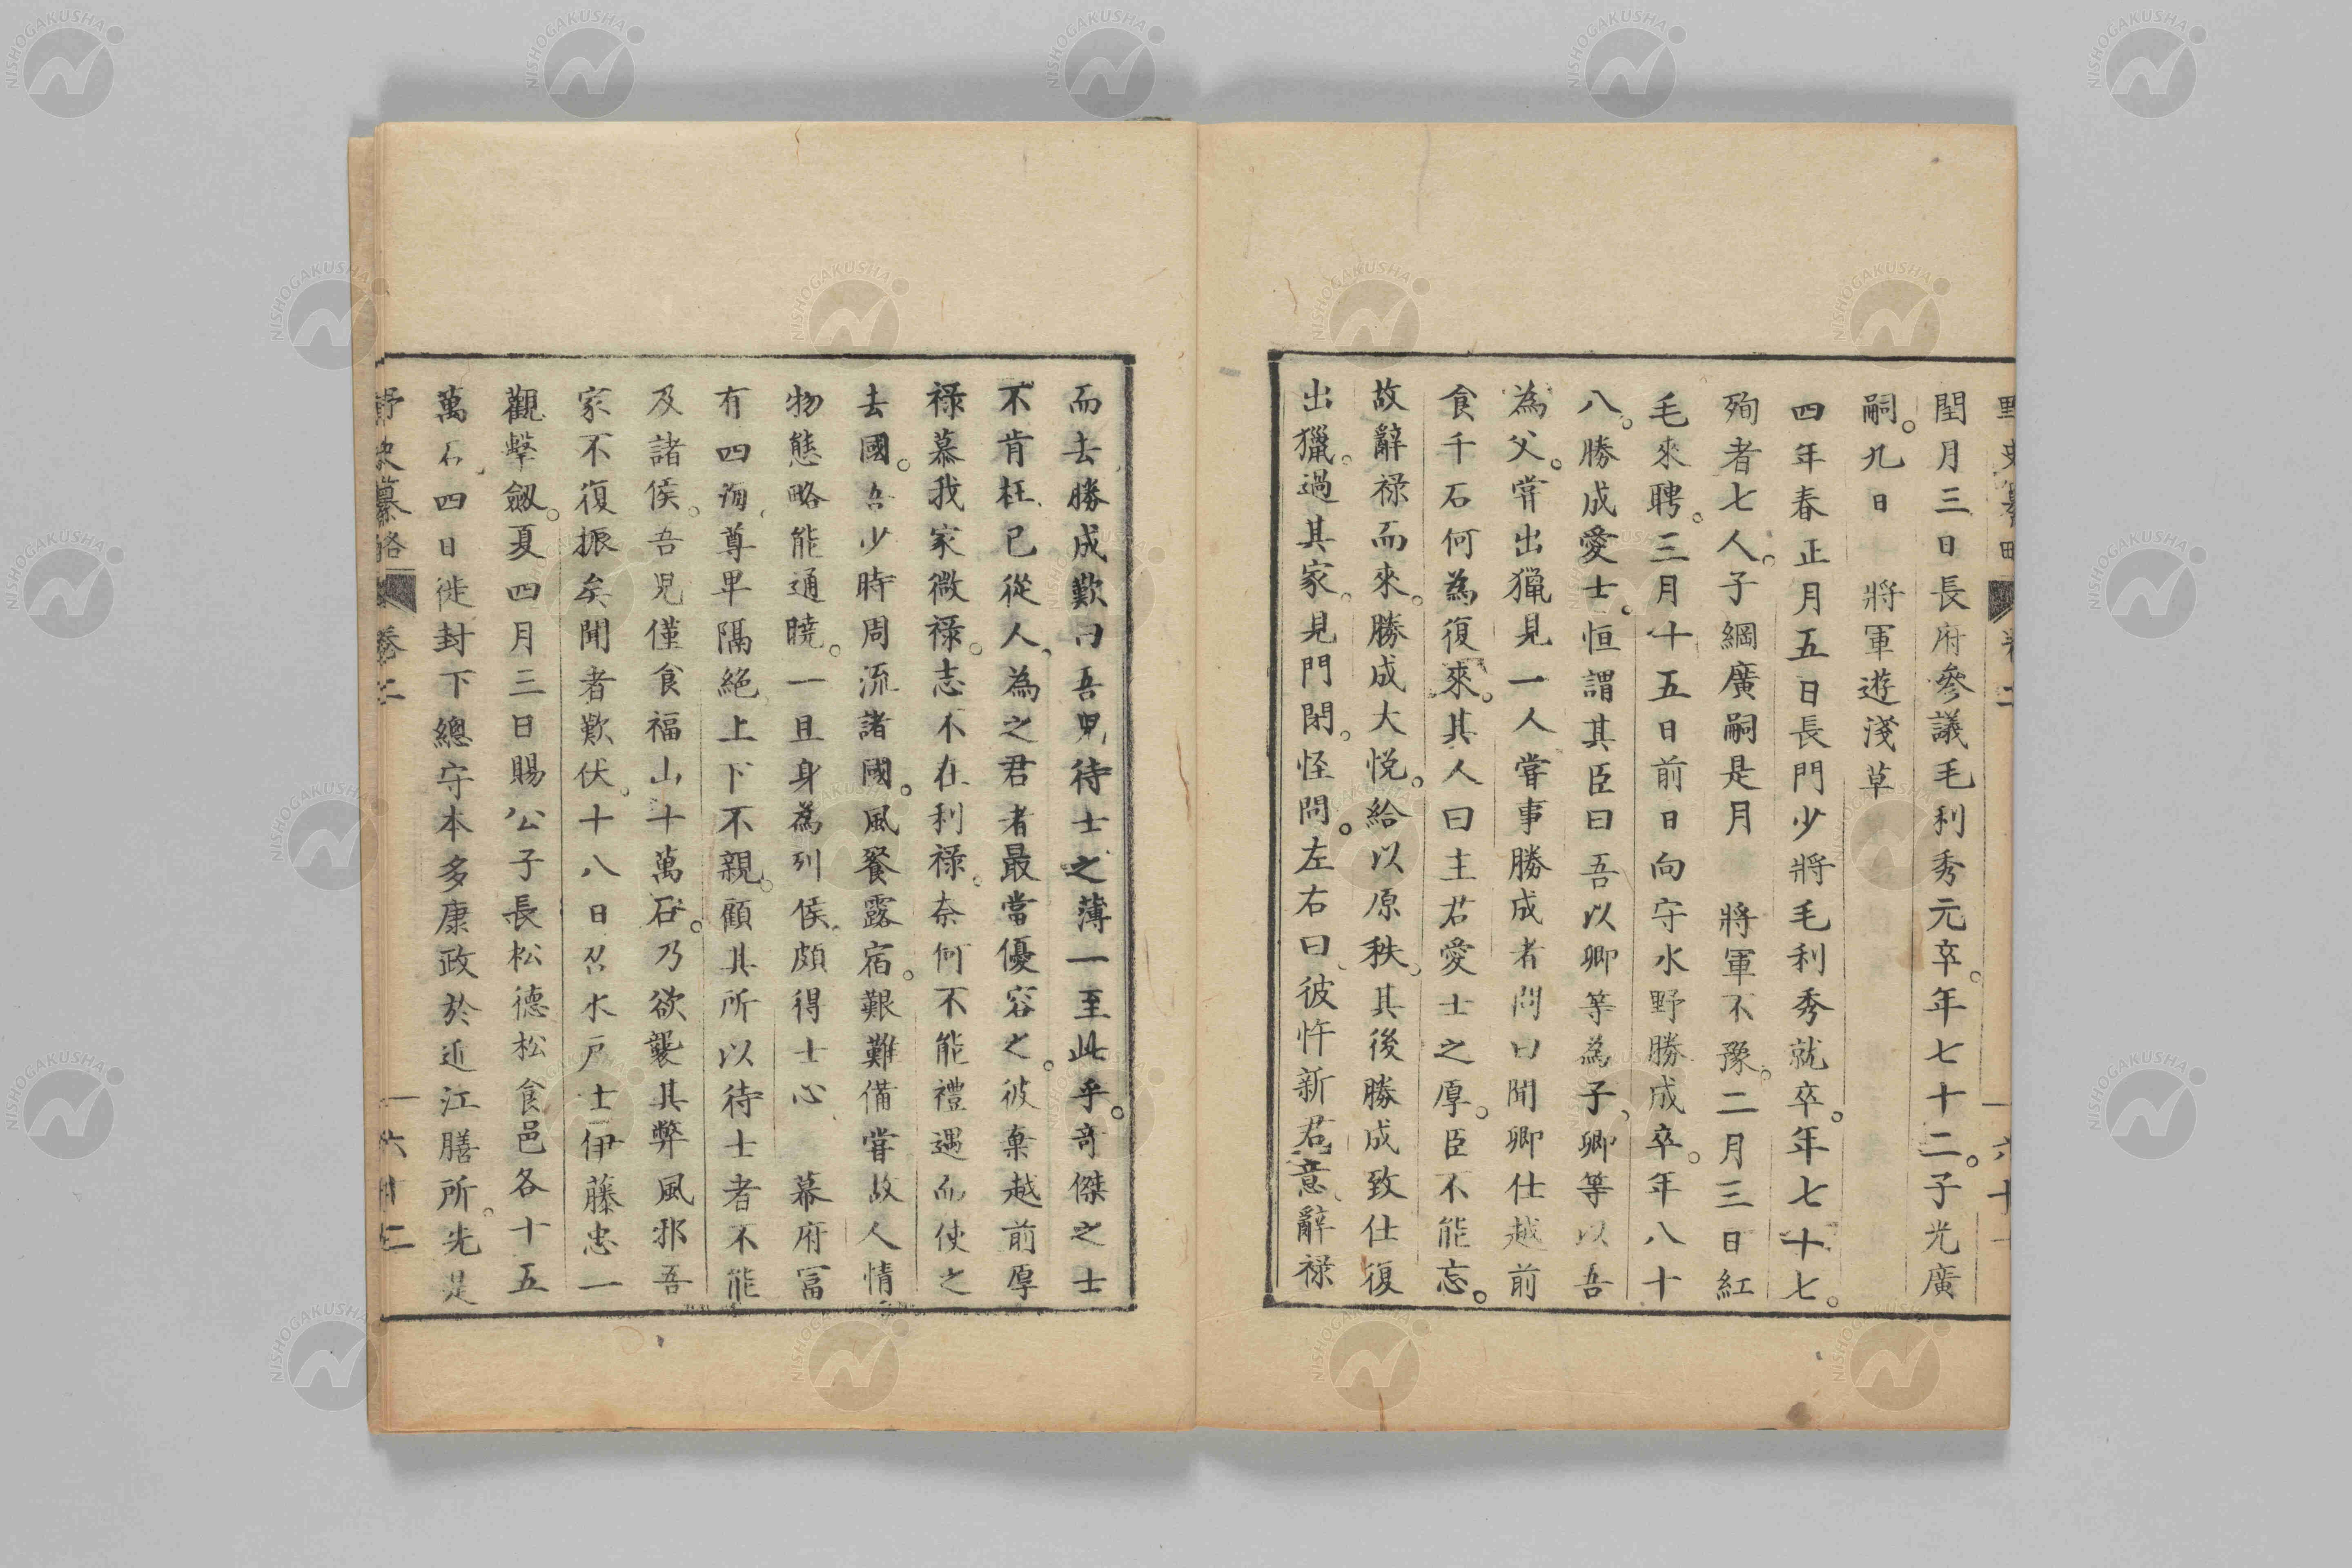 閏月三日長府參議毛利秀元卒。年七十二。子光廣
嗣。九日 將軍遊淺草
四年春正月五日長門少將毛利秀就卒。年七十七。
殉者七人。子綱廣嗣是月 將軍不豫。二月三日紅
毛來聘。三月十五日前日向守水野勝成卒。年八十
八。勝成愛士。恒謂其臣曰吾以卿等為子。卿等以吾
為父。嘗出獵見一人嘗事勝成者問曰聞卿仕越前
食千石何為復來。其人曰主君愛士之厚。臣不能忘。
故辭祿而來。勝成大悅。給以原秩。其後勝成致仕復
出獵。過其家。見門閉。怪問。左右曰、彼忤新君意、辭祿
而去勝成歎曰吾児待士之薄一至此乎。奇傑之士
不肯枉己從人、為之君者最當優容之。彼棄越前厚
祿慕我家微祿。志不在利祿。奈何不能禮遇而使之
去國。吾少時周流諸國。風餐露宿。艱難備嘗故人情
物態略能通曉。一旦身為列侯。頗得士心 幕府富
有四海、尊卑隔絕、上下不親。顧其所以待士者不能
及諸侯。吾児僅食福山十萬石。乃欲襲其弊風邪吾
家不復振矣聞者歎伏。十八日召水戶士伊藤忠一
觀擊劔。夏四月三日賜公子長松德松食邑各十五
萬石、四日徙封下總守本多康政於近江膳所。先是
野史纂略 卷二